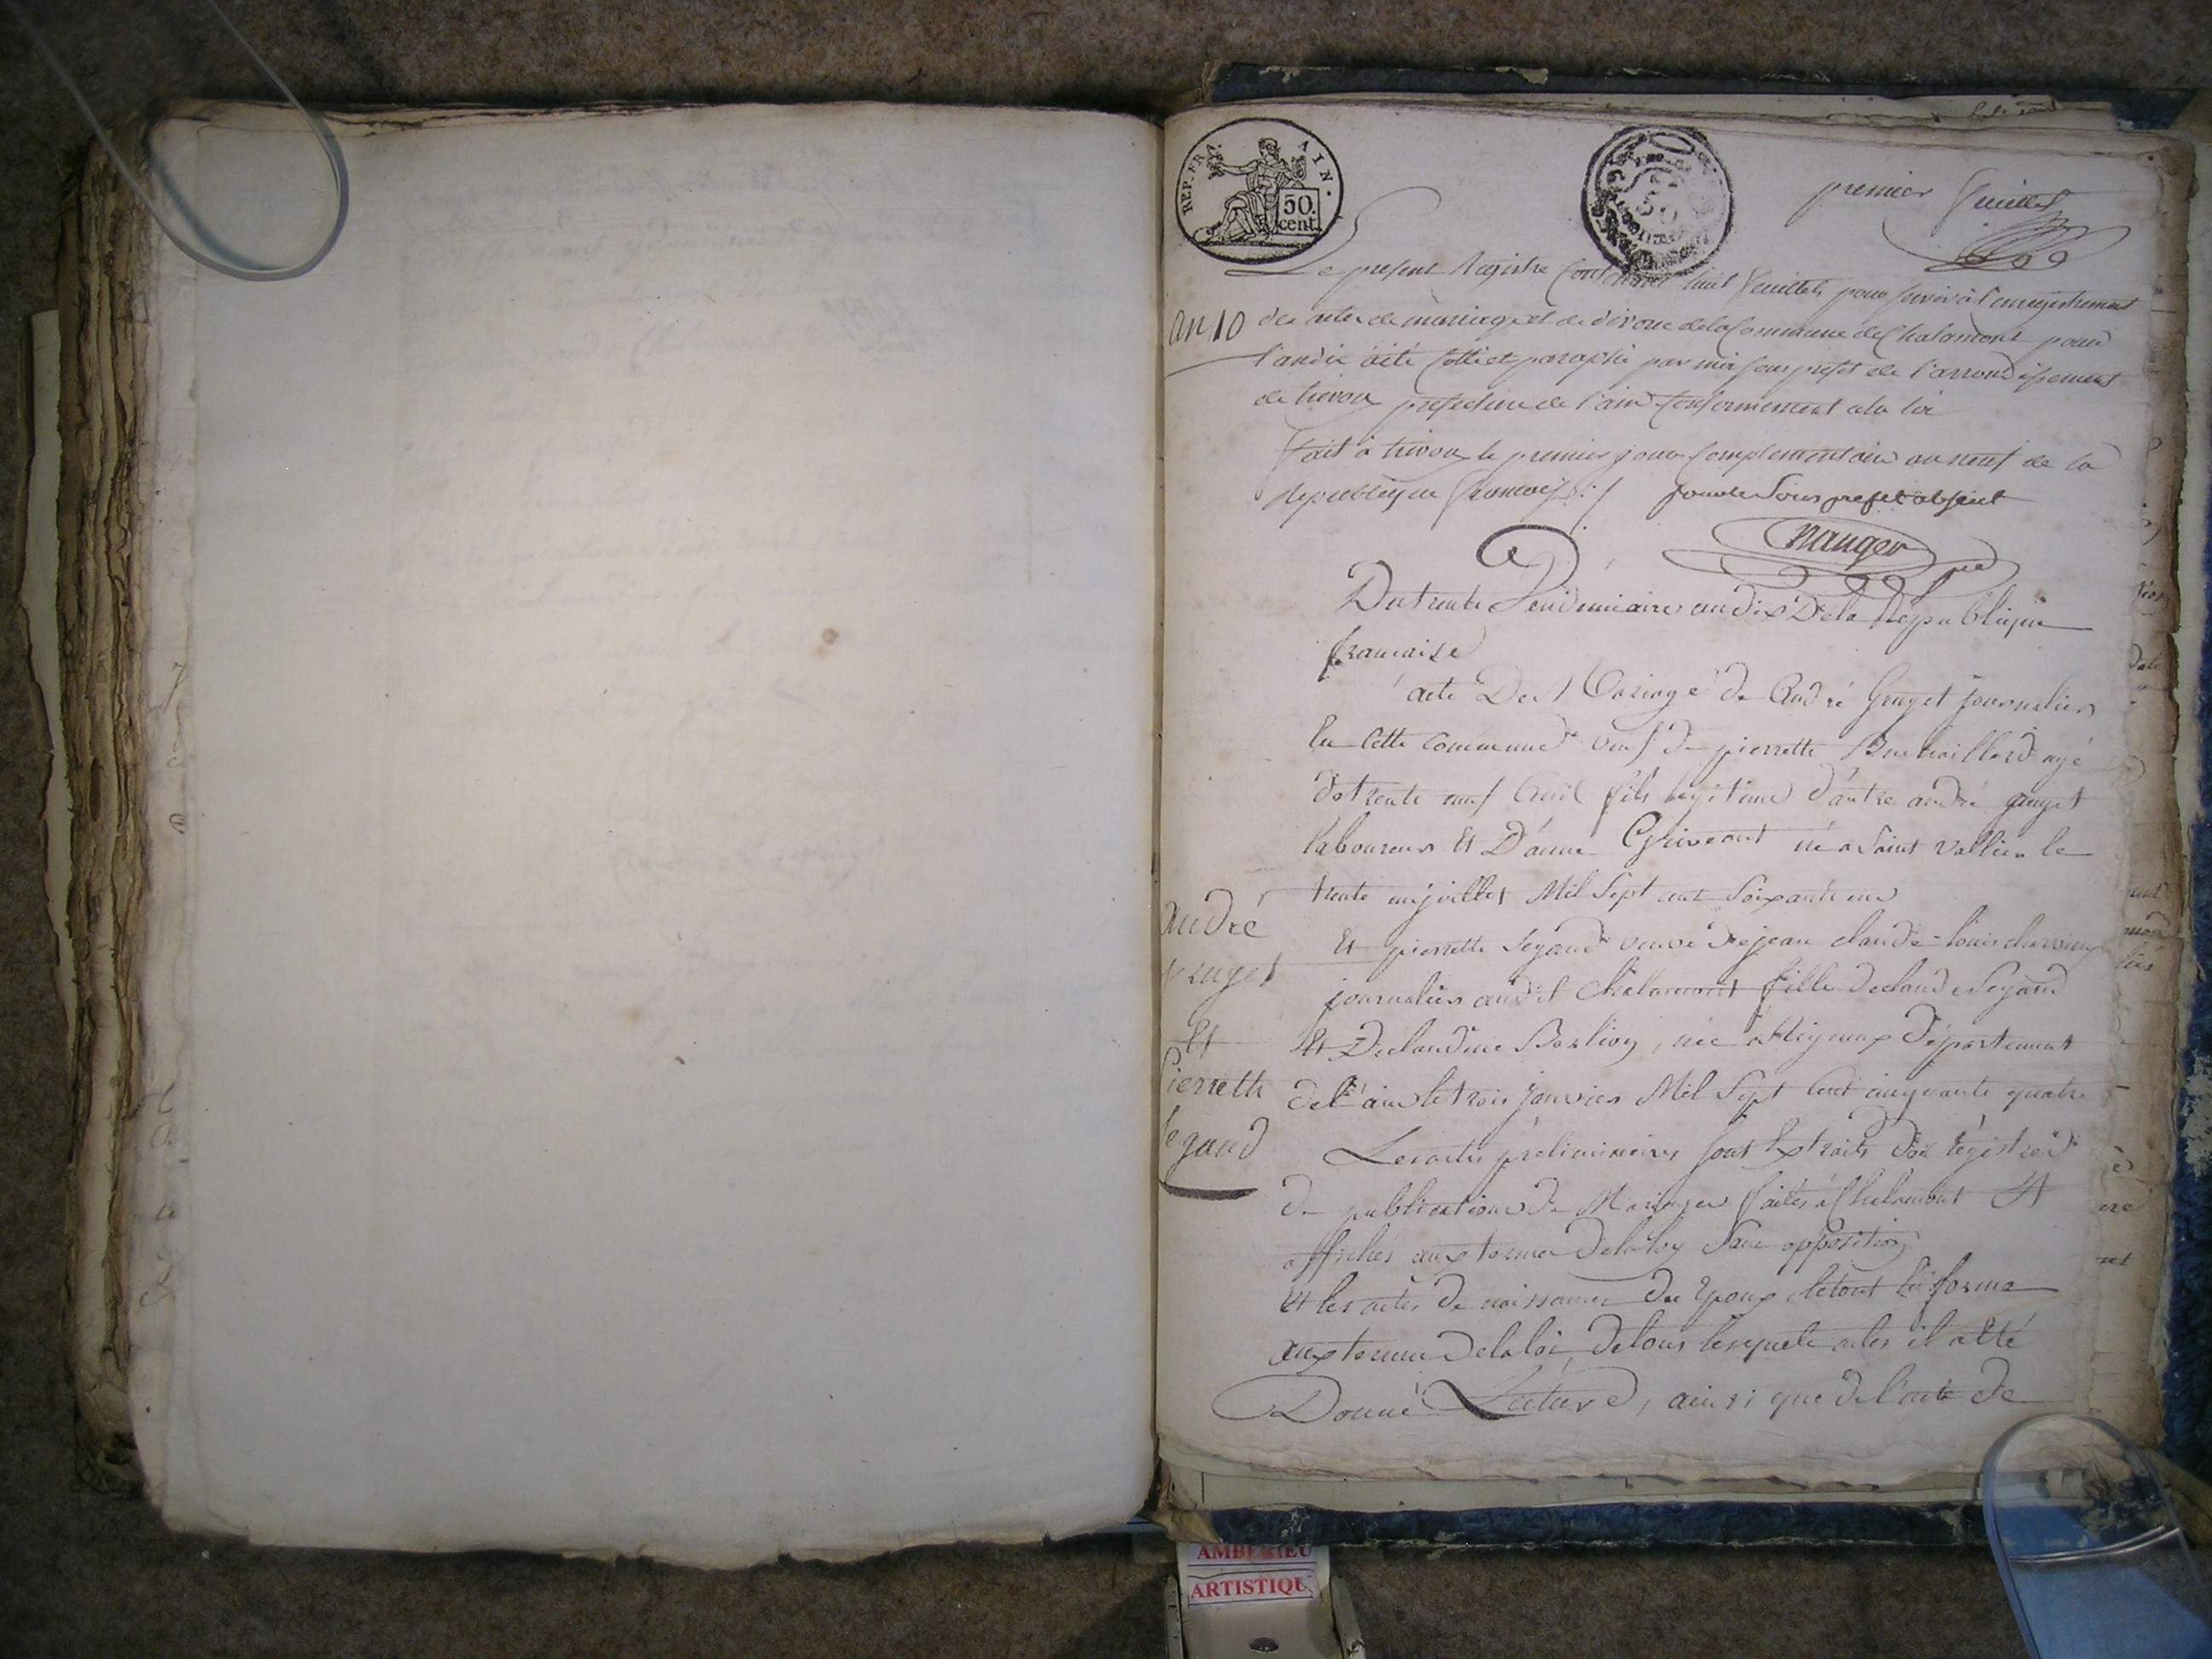 REP. FRA. AIN.
50. cent.
premier feuillet
Le present Registre Contenant huit feuillets pour servir à l'enregistrement
an 10
des actes de mariage et de divorce de la Commune de Chalamont pour
l'an dix a été Cotté et paraphé par moi sous prefet de l'arrondissement
de trevoux prefecture de l'ain Conformement a la loi
fait à trevoux le premier jour Complementaire an neuf de la
Republique francoise
pour le Sous prefet absent
Mauger
Du trente Vendemiaire an dix De la Republique
francaise
acte De Mariage de André Gruget journalier
En Cette commune veuf de pierrette âgé
de trente neuf fils legitime d'autre andré gruget
laboureur Et D'anne né a Saint vallier le
trente juillet Mil Sept cent Soixante
André
Gruget
Et
Pierrette
Segaud
Et pierrette Segaud veuve de jean claude louis
journalier audit Chalamont fille de claude Segaud
Et De claudine née a Rigneux Département
de l'ain le trois janvier Mil Sept Cent cinquante quatre
Les actes préliminaires sont Extraits des régistres
de publications de Mariages faites a Chalamont Et
affichés aux termes De la loy Sans opposition
Et les actes de naissance des Epoux le tout En forme
aux termes De la loi, De tous lesquels actes il a été
Donné Lecture, ainsi que de l'acte de
AMBERIEU
ARTISTIQU